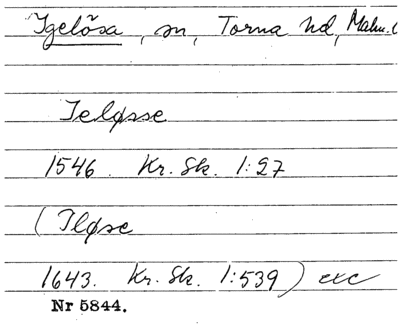 Igelösa, sn, Torna hd, Malm. (
Ieløsse
1546. Kr. Sk. 1:27
(Iløse
1643. Kr. Sk. 1:539) exc
Nr 5844.